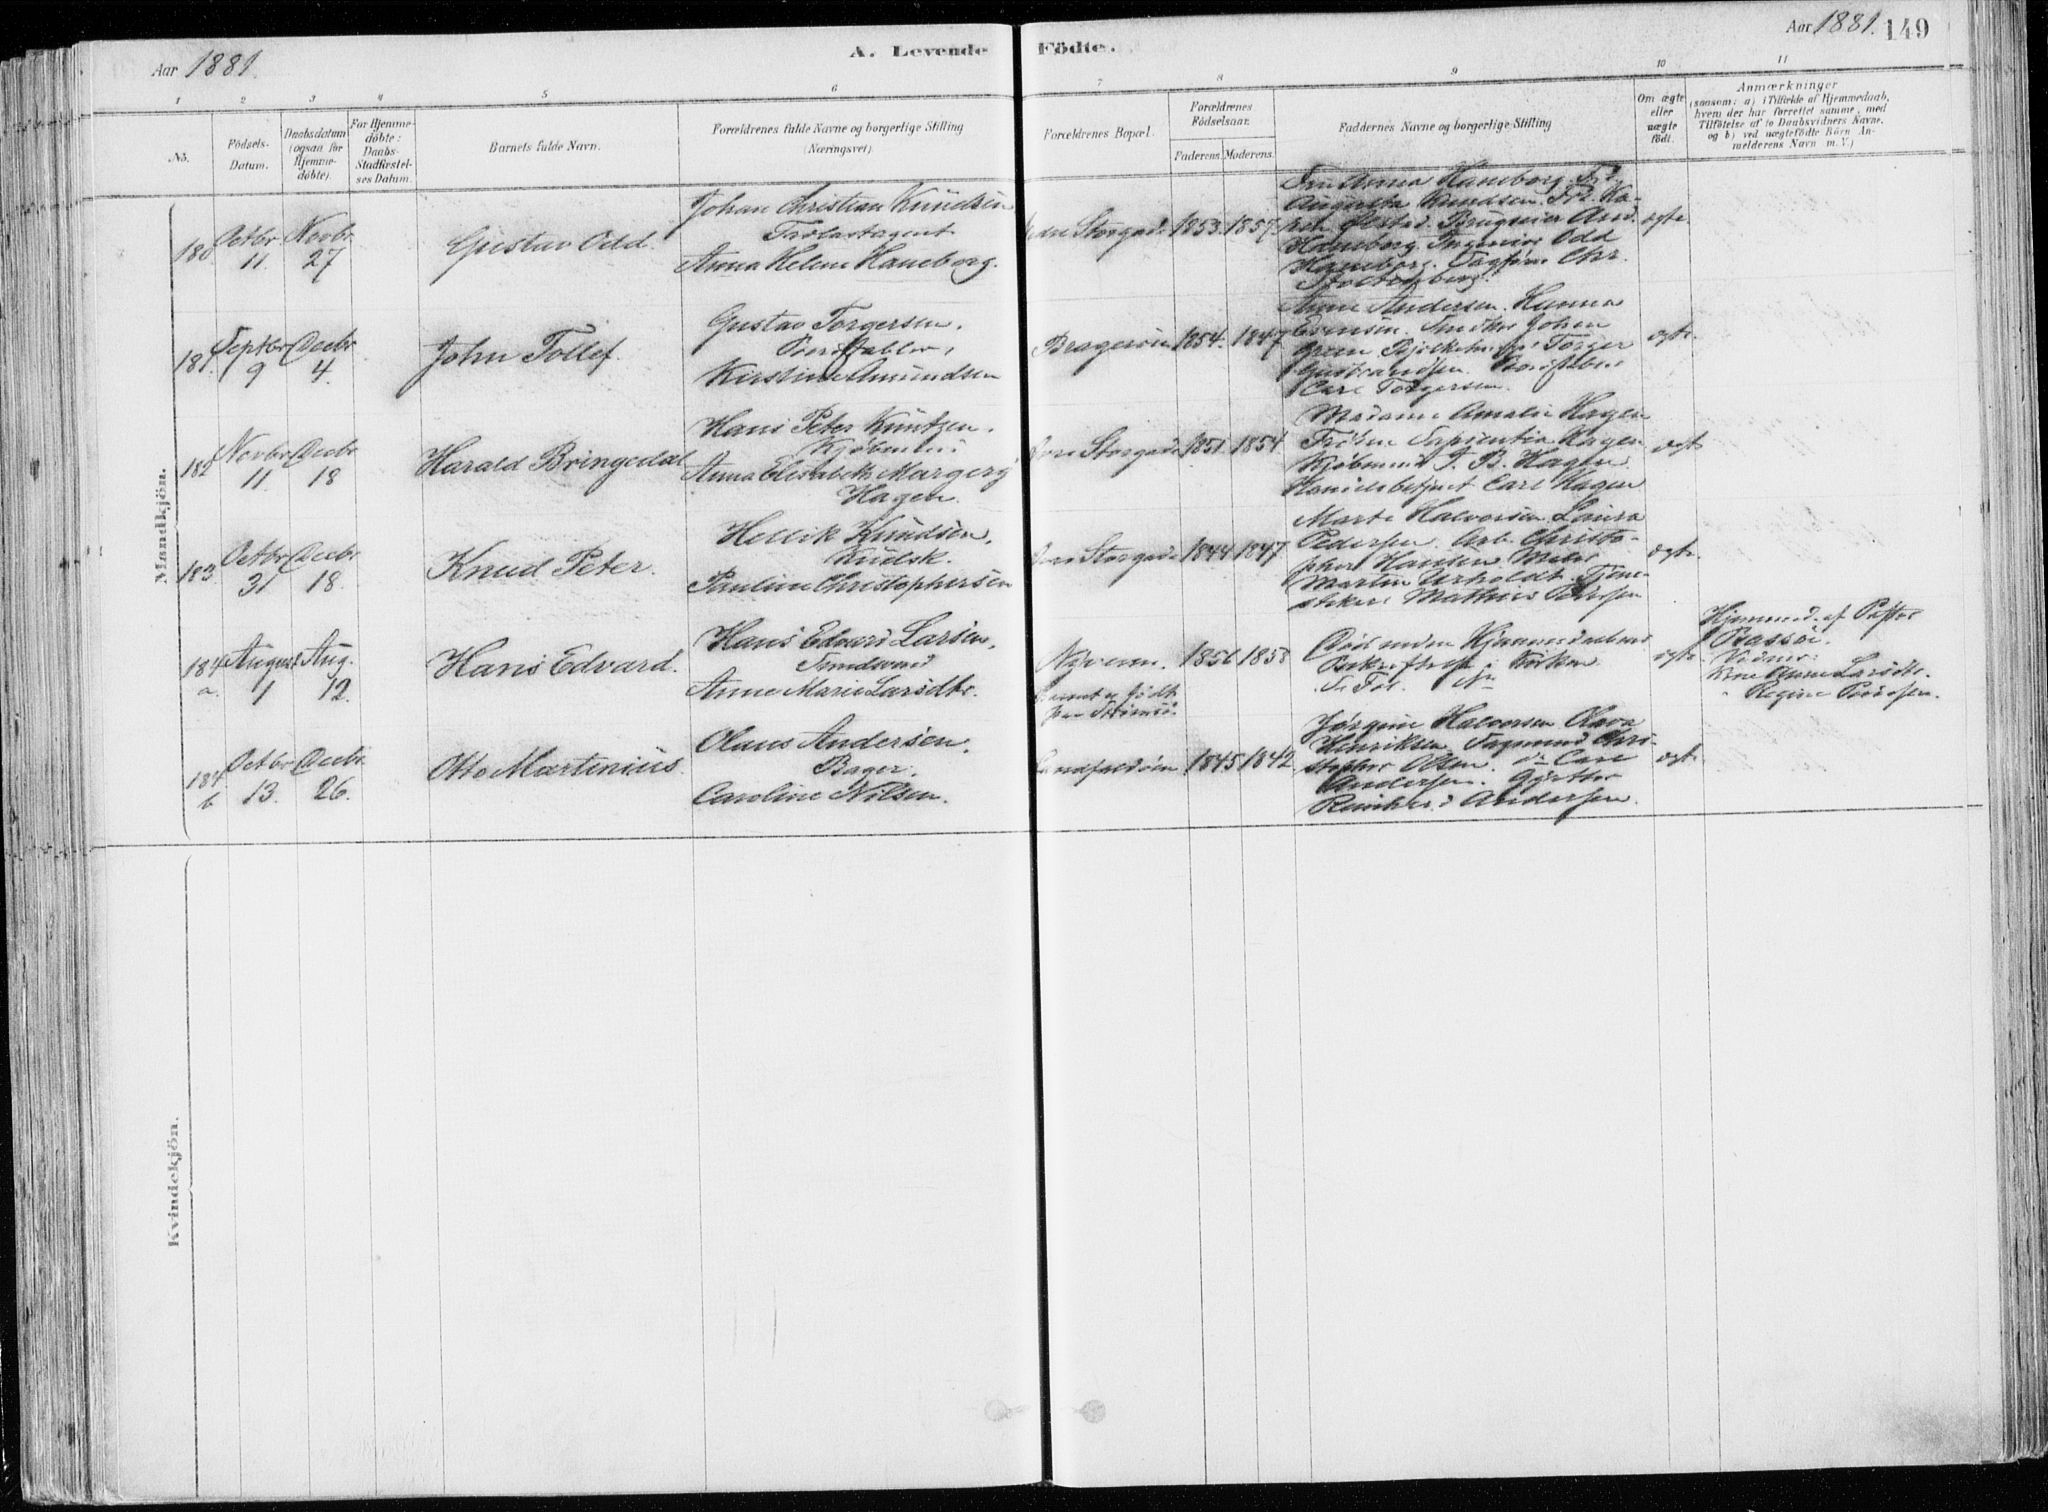 Aar 1881.
A. Levende Födte.
Aar 1881. 149
1 2 3 4 5 6 7 8 9 10 11
No.
Födsels-Datum.
Daabsdatum (ogsaa for Hjemme-döbte).
For Hjemme-döbte: Daabs-Stadfæstel-ses Datum.
Barnets fulde Navn.
Forældrenes fulde Navne og borgerlige Stilling (Næringsvei).
Forældrenes Bopæl.
Forældrenes Födselsaar.
Faderens. Moderens.
Faddernes Navne og borgerlige Stilling
Om ægte eller uægte födt.
Anmærkninger
(saasom: a) i Tilfælde af Hjemmedaab,
hvem der har forrettet samme, med
Tilföielse af to Daabsvidners Navne,
og b) ved uægtefödte Börn An-
melderens Navn m. V.)
Mandkjön.
180 Octbr 11. Novbr 27
Gustav Odd.
Johan Christian Knudsen
Trælastagent
Anna Helene Haneborg.
Storgade 1853. 1857
Fru Anna Haneborg. Frk.
Augusta Knudsen. Frk. Ka-
Brugseier And.
Haneborg. Ingeniør Odd
Haneborg. Chr.
Stoltenberg.
ægte
181. Septbr 9 Decbr 4.
John Tollef.
Gustav Torgersen.
Bordstabler,
Kirstine Amundsen
Brageröen 1854. 1847
Anne Andersen. Hanna
Evensen. Snedker Johan
Torger
Bordstabler
Carl Torgersen.
ægte
182 Novbr 11. Decbr 18
Harald Bringedal
Hans Peter Küntzen.
Kjøbmand
Anna Elisabeth Margery
Hagen
Storgade 1851 1854
Madame Amalie Hagen
Frøken Sapientia Hagen
Kjøbmand T. B. Hagen
Handelsbetjent Carl Hagen
ægte
183. Octbr 31 Decbr 18.
Knud Peter.
Hellik Knudsen.
Kudsk.
Pauline Christophersen
Storgade 1844 1847
Marte Halvorsen Laura
Pedersen. Arb. Christo-
pher Hansen Maler
Martin Urholdt. Tjene-
Mathias
ægte
184 a. August 1 Aug. 12.
Hans Edvard.
Hans Edvard Larsen.
Anne Marie Larsdtr.
Nyveien. 1856 1858
Barnet er født
paa Strömsö.
Död uden Hjemmedaabens
Bekræftelse i Kirken
ægte
Hjemmed. af Pastor
Bassöe.
Vidner:
Kone Anne Larsdtr.
" Regine
184 b Octbr 13. Decbr 26.
Otto Martinius.
Olaus Andersen.
Bager.
Caroline Nilsen.
Landfaldöen 1845 1842
Jörgine Halvorsen Olava
Henriksen Chri-
stopher Olsen. do Carl
Andersen. Gjørtler
Andersen.
ægte
Kvindekjön.